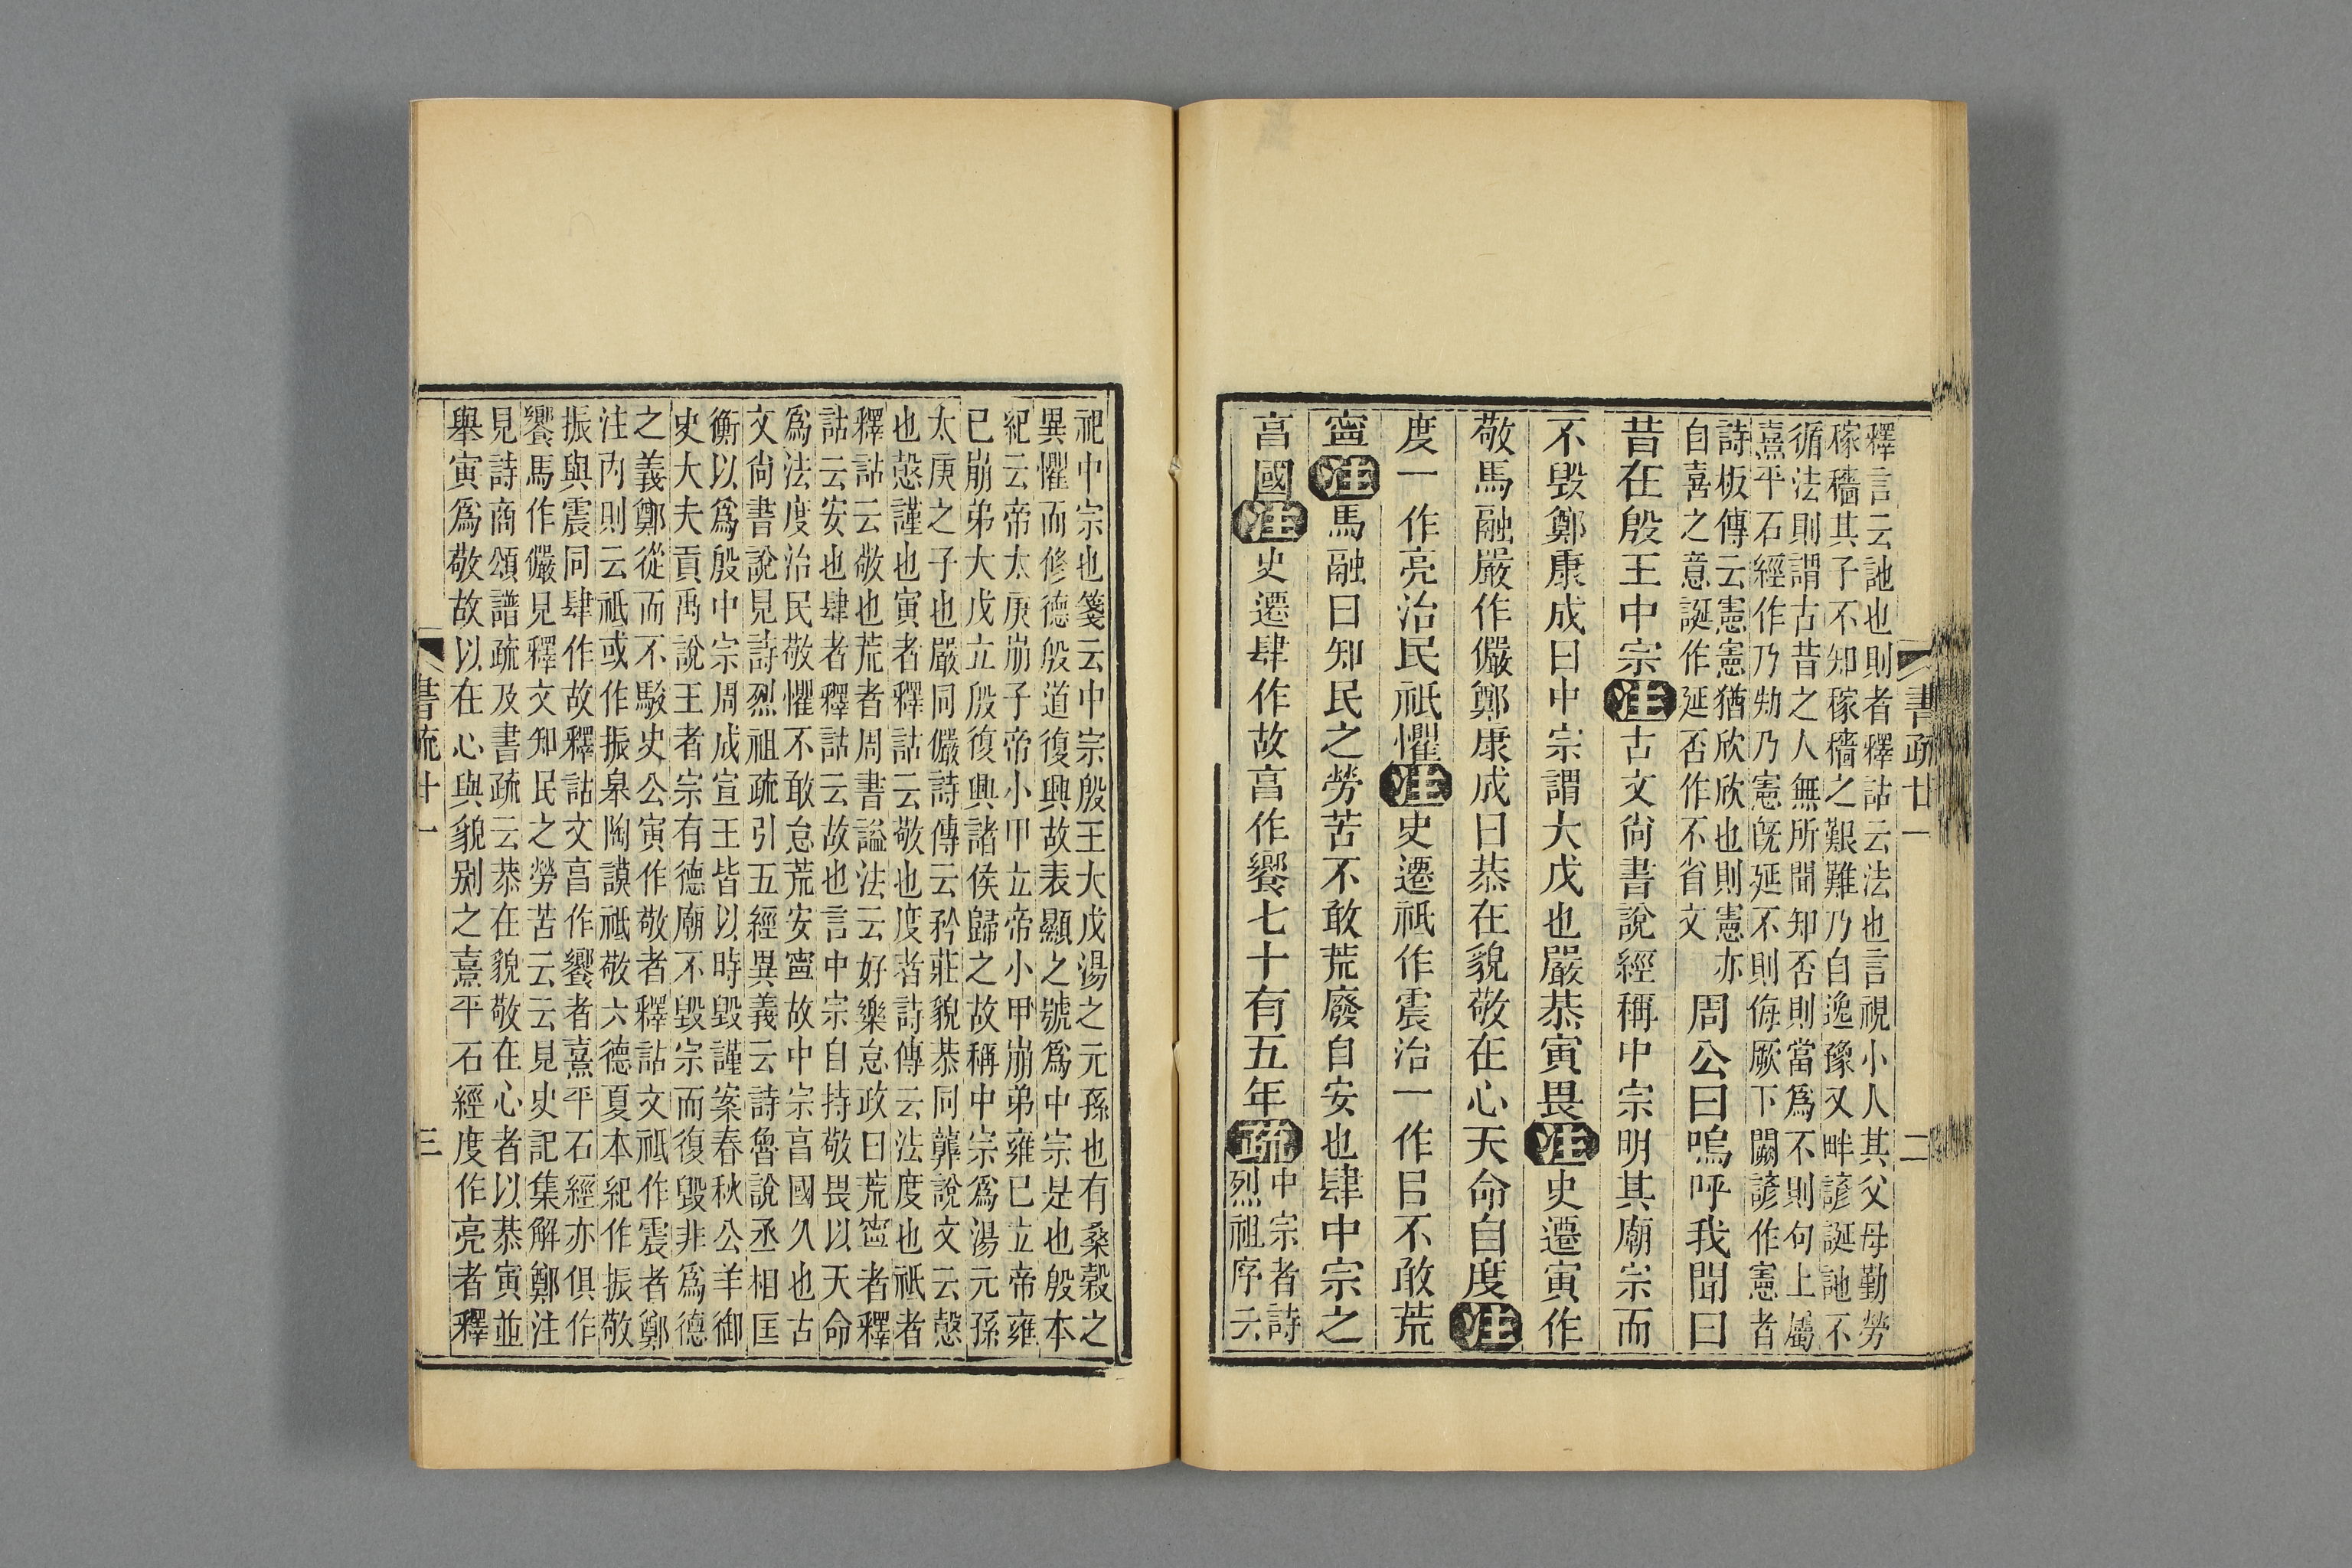 書疏廿一
二
釋言云訑也則者釋詁云法也言視小人其父母勤勞
稼穡其子不知稼穡之艱難乃自逸豫又畔諺誕訑不
循法則謂古昔之人無所聞知否則當爲不則句上屬
熹平石經作乃勑乃憲旣延不則侮厥下闕諺作憲者
詩板傳云憲憲猶欣欣也則憲亦
自喜之意誕作延否作不省文
周公曰嗚呼我聞曰
昔在殷王中宗注古文尙書說經稱中宗明其廟宗而
不毀鄭康成曰中宗謂大戊也嚴恭寅畏注史遷寅作
敬馬融嚴作儼鄭康成曰恭在貌敬在心天命自度注
度一作亮治民祇懼注史遷祇作震治一作㠯不敢荒
寍注馬融曰知民之勞苦不敢荒廢自安也肆中宗之
亯國注史遷肆作故亯作饗七十有五年疏
中宗者詩
烈祖序云
祀中宗也箋云中宗殷王大戊湯之元孫也有桑榖之
異懼而修德殷道復興故表顯之號爲中宗是也殷本
紀云帝太庚崩子帝小甲立帝小甲崩弟雍已立帝雍
已崩弟大戊立殷復興諸侯歸之故稱中宗爲湯元孫
太庚之子也嚴同儼詩傳云矜莊貌恭同龏說文云愨
也愨謹也寅者釋詁云敬也度者詩傳云法度也祇者
釋詁云敬也荒者周書謚法云好樂怠政曰荒寍者釋
詁云安也肆者釋詁云故也言中宗自持敬畏以天命
爲法度治民敬懼不敢怠荒安寍故中宗亯國久也古
文尙書說見詩烈祖疏引五經異義云詩魯說丞相匡
衡以爲殷中宗周成宣王皆以時毀謹案春秋公羊御
史大夫貢禹說王者宗有德廟不毀宗而復毀非爲德
之義鄭從而不駮史公寅作敬者釋詁文祇作震者鄭
注內則云祇或作振皋陶謨祇敬六德夏本紀作振敬
振與震同肆作故釋詁文亯作饗者熹平石經亦俱作
饗馬作儼見釋文知民之勞苦云云見史記集解鄭注
見詩商頌譜疏及書疏云恭在貌敬在心者以恭寅並
舉寅爲敬故以在心與貌别之熹平石經度作亮者釋
書疏廿一
三